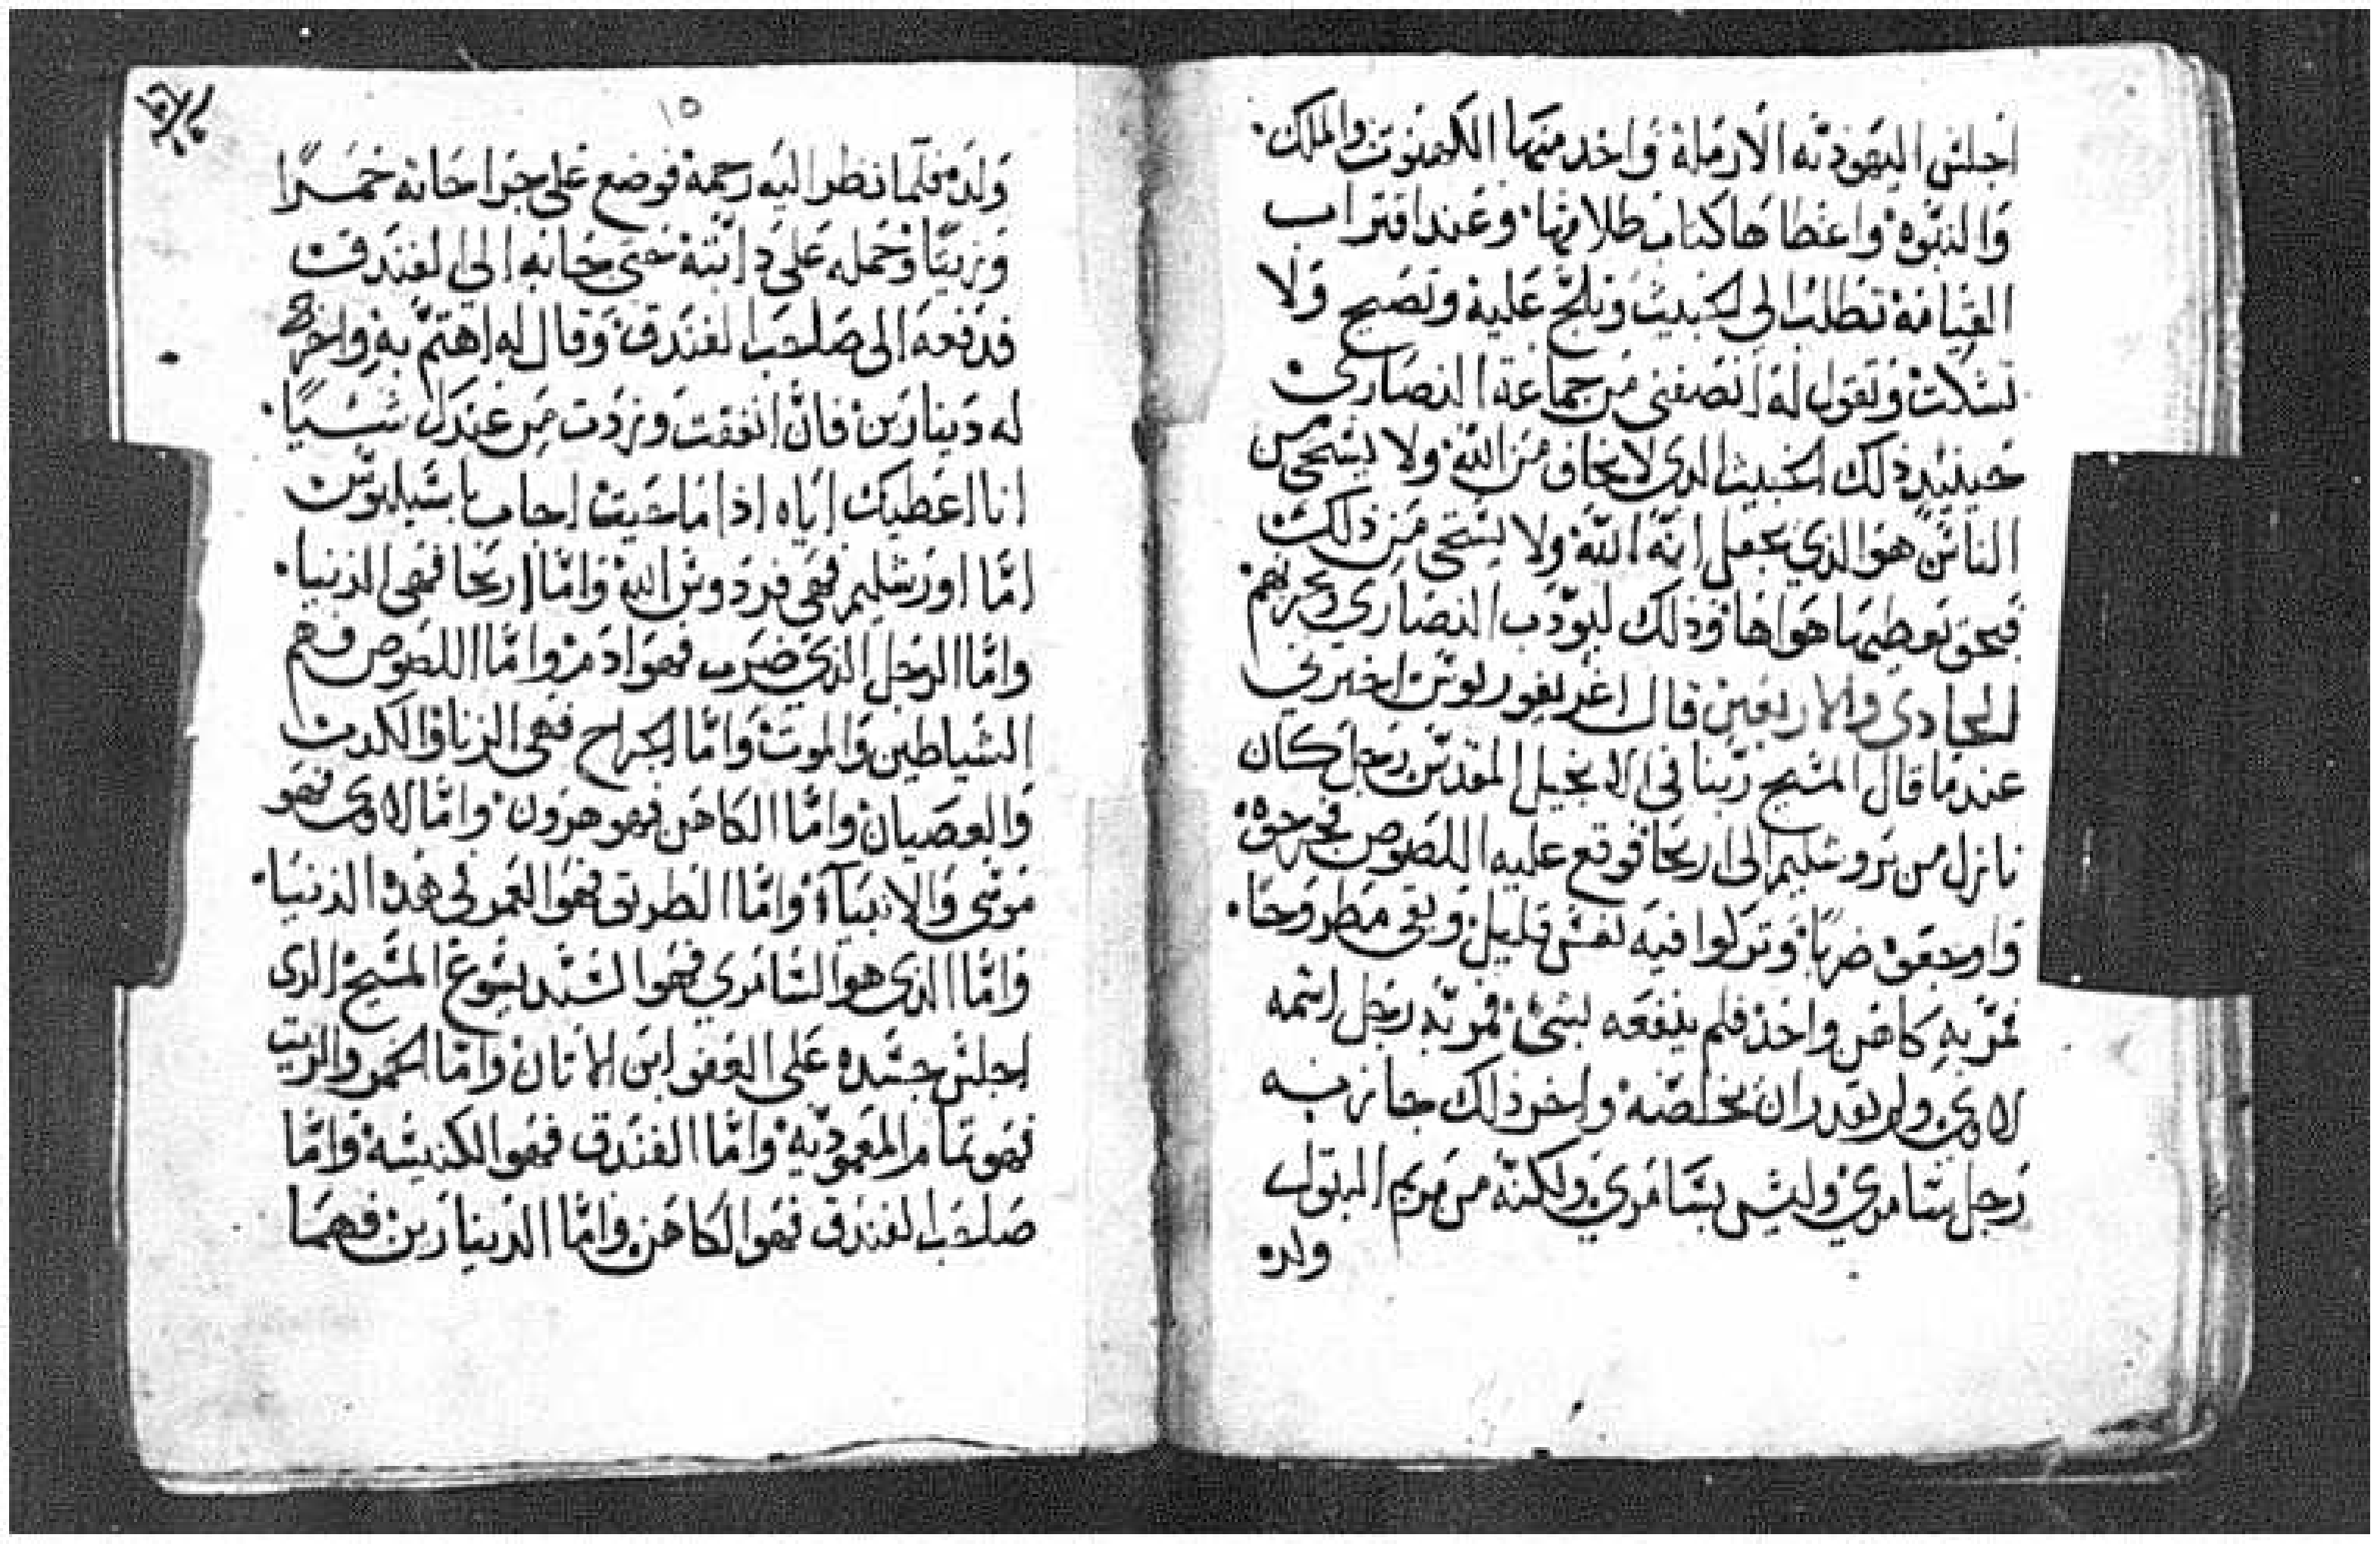 اجلس اليهوديه الارملة واخد منها الكهنوت والملك.
والنبوه واعطاها كتاب طلاقها. وعند اقتراب
القيامة تطلب الى الخبيث وتلج عليه وتصيح ولا
تسكت وتقول له انصفني من جماعة النصارى
حينيد ذلك الخبيث الدي لا يخاف من الله ولا يستحي من
الناس هو الذي يجعل انه الله ولا يستحي من ذلك
هواها وذلك ليودب النصاري ويحزنهم
الحادي والاربعين قال اغريغوريوس اخبرني
عندما قال المسيح ربنا في الانجيل المقدس رجل كان
نازل من يروشليم الى اريحا فوقع عليه اللصوص فجرحوه.
واوجعوه ضربا. وتركوا فيه نفس قليل. وبقى مطروحا.
فمر به كاهن واحد فلم ينفعه بشئ. فمر به رجل اسمه
لاوي ولم يقدر ان يخلصه واخر ذلك جاز به
رجل سامري وليس بسامري ولكنه من مريم البتول
ولده
١٥
ولد فلما نظر اليه رحمه فوضع على جراحاته خمرا
وزيتا وحمله على دابته حتى جابه الى الفندق
فدفعه الى صاحب الفندق. وقال له اهتم به واخرج
له دينارين فان انفقت وزدت من عندك شيا.
انا اعطيك اياه اذا ما جيت اجاب باسيليوس
اما اورشليم فهي فردوس الله واما اريحا فهي الدنيا.
واما الرجل الذي ضرب فهو ادم واما اللصوص فهم
الشياطين والموت واما الجراح فهي الزنا والكدب
والعصيان. واما الكاهن فهو هرون. واما لاوي فهو
موسى والانبياء واما الطريق فهو العمر في هذه الدنيا.
واما الذي هو السامري فهو السيد يسوع المسيح الدى
اجلس جسده على العفو ابن الاتان واما الخمر والزيت
فهو تمام المعموديه واما الفندق فهو الكنيسة. واما
صاحب الفندق فهو الكاهن واما الدينارين فهما